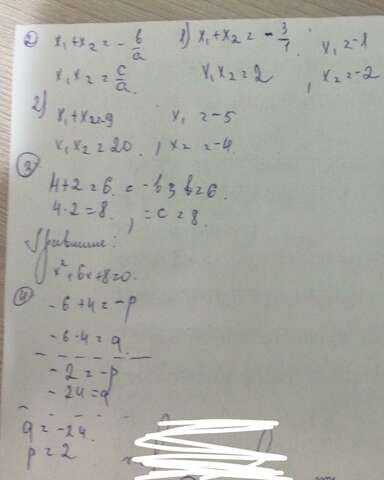 ② x₁+x₂ = -b/a 1) x₁+x₂ = -3/1 x₁ = -1
x₁x₂ = c/a. x₁x₂ = 2 , x₂ = -2
2) x₁+x₂=-9 x₁ = -5
x₁x₂ = 20. , x₂ = -4.
③
4+2=6. = -b; b=6.
4·2=8. , = c = 8.
Уравнение:
x²+6x+8=0.
④ -6+4=-p
-6·4=q.
-2=-p
-24=q
q = -24.
p = 2